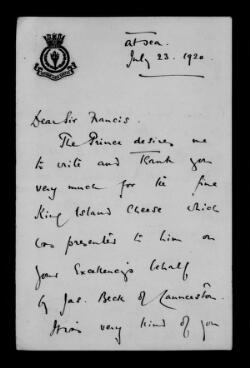 At Sea.
July 23. 1920.
Dear Sir Francis.
The Prince desires me
to write and thank you
very much for the fine
King Island Cheese which
was presented to him on
Your Excellency's behalf
by Jas. Beck of Launceston.
It was very kind of you